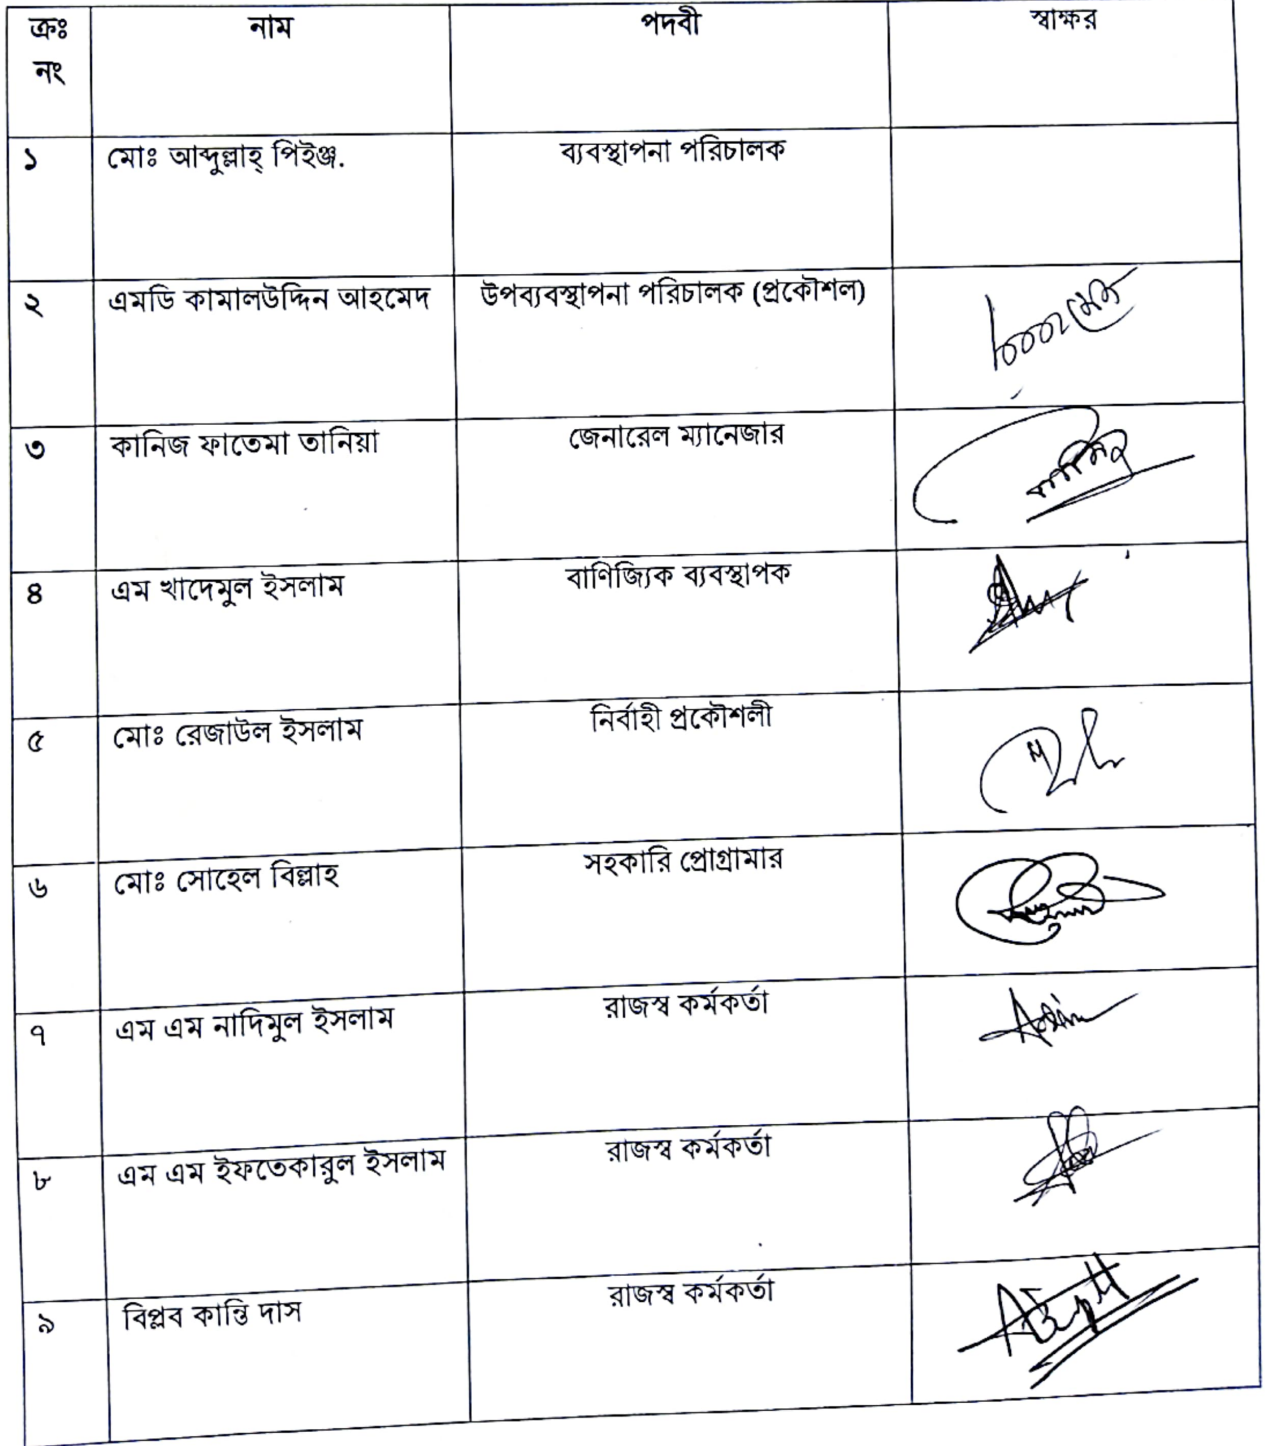 ক্রঃ নং নাম পদবী স্বাক্ষর
১ মোঃ আব্দুল্লাহ্ পিইঞ্জ. ব্যবস্থাপনা পরিচালক
২ এমডি কামালউদ্দিন আহমেদ উপব্যবস্থাপনা পরিচালক (প্রকৌশল)
৩ কানিজ ফাতেমা তানিয়া জেনারেল ম্যানেজার
৪ এম খাদেমুল ইসলাম বাণিজ্যিক ব্যবস্থাপক
৫ মোঃ রেজাউল ইসলাম নির্বাহী প্রকৌশলী
৬ মোঃ সোহেল বিল্লাহ সহকারি প্রোগ্রামার
৭ এম এম নাদিমুল ইসলাম রাজস্ব কর্মকর্তা
৮ এম এম ইফতেকারুল ইসলাম রাজস্ব কর্মকর্তা
৯ বিপ্লব কান্তি দাস রাজস্ব কর্মকর্তা